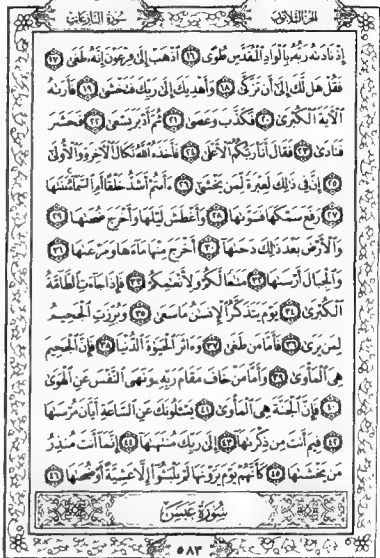 الجزء الثلاثون سورة النازعات
إِذْ نَادَىٰهُ رَبُّهُۥ بِٱلْوَادِ ٱلْمُقَدَّسِ طُوًى ١٦ ٱذْهَبْ إِلَىٰ فِرْعَوْنَ إِنَّهُۥ طَغَىٰ ١٧
فَقُلْ هَل لَّكَ إِلَىٰٓ أَن تَزَكَّىٰ ١٨ وَأَهْدِيَكَ إِلَىٰ رَبِّكَ فَتَخْشَىٰ ١٩ فَأَرَىٰهُ
ٱلْـَٔايَةَ ٱلْكُبْرَىٰ ٢٠ فَكَذَّبَ وَعَصَىٰ ٢١ ثُمَّ أَدْبَرَ يَسْعَىٰ ٢٢ فَحَشَرَ
فَنَادَىٰ ٢٣ فَقَالَ أَنَا۠ رَبُّكُمُ ٱلْأَعْلَىٰ ٢٤ فَأَخَذَهُ ٱللَّهُ نَكَالَ ٱلْـَٔاخِرَةِ وَٱلْأُولَىٰٓ
٢٥ إِنَّ فِى ذَٰلِكَ لَعِبْرَةً لِّمَن يَخْشَىٰٓ ٢٦ ءَأَنتُمْ أَشَدُّ خَلْقًا أَمِ ٱلسَّمَآءُ بَنَىٰهَا
٢٧ رَفَعَ سَمْكَهَا فَسَوَّىٰهَا ٢٨ وَأَغْطَشَ لَيْلَهَا وَأَخْرَجَ ضُحَىٰهَا ٢٩
وَٱلْأَرْضَ بَعْدَ ذَٰلِكَ دَحَىٰهَآ ٣٠ أَخْرَجَ مِنْهَا مَآءَهَا وَمَرْعَىٰهَا ٣١
وَٱلْجِبَالَ أَرْسَىٰهَا ٣٢ مَتَٰعًا لَّكُمْ وَلِأَنْعَٰمِكُمْ ٣٣ فَإِذَا جَآءَتِ ٱلطَّآمَّةُ
ٱلْكُبْرَىٰ ٣٤ يَوْمَ يَتَذَكَّرُ ٱلْإِنسَٰنُ مَا سَعَىٰ ٣٥ وَبُرِّزَتِ ٱلْجَحِيمُ
لِمَن يَرَىٰ ٣٦ فَأَمَّا مَن طَغَىٰ ٣٧ وَءَاثَرَ ٱلْحَيَوٰةَ ٱلدُّنْيَا ٣٨ فَإِنَّ ٱلْجَحِيمَ
هِىَ ٱلْمَأْوَىٰ ٣٩ وَأَمَّا مَنْ خَافَ مَقَامَ رَبِّهِۦ وَنَهَى ٱلنَّفْسَ عَنِ ٱلْهَوَىٰ
٤٠ فَإِنَّ ٱلْجَنَّةَ هِىَ ٱلْمَأْوَىٰ ٤١ يَسْـَٔلُونَكَ عَنِ ٱلسَّاعَةِ أَيَّانَ مُرْسَىٰهَا
٤٢ فِيمَ أَنتَ مِن ذِكْرَىٰهَآ ٤٣ إِلَىٰ رَبِّكَ مُنتَهَىٰهَآ ٤٤ إِنَّمَآ أَنتَ مُنذِرُ
مَن يَخْشَىٰهَا ٤٥ كَأَنَّهُمْ يَوْمَ يَرَوْنَهَا لَمْ يَلْبَثُوٓا۟ إِلَّا عَشِيَّةً أَوْ ضُحَىٰهَا ٤٦
سُورَةُ عَبَسَ
٥٨٣